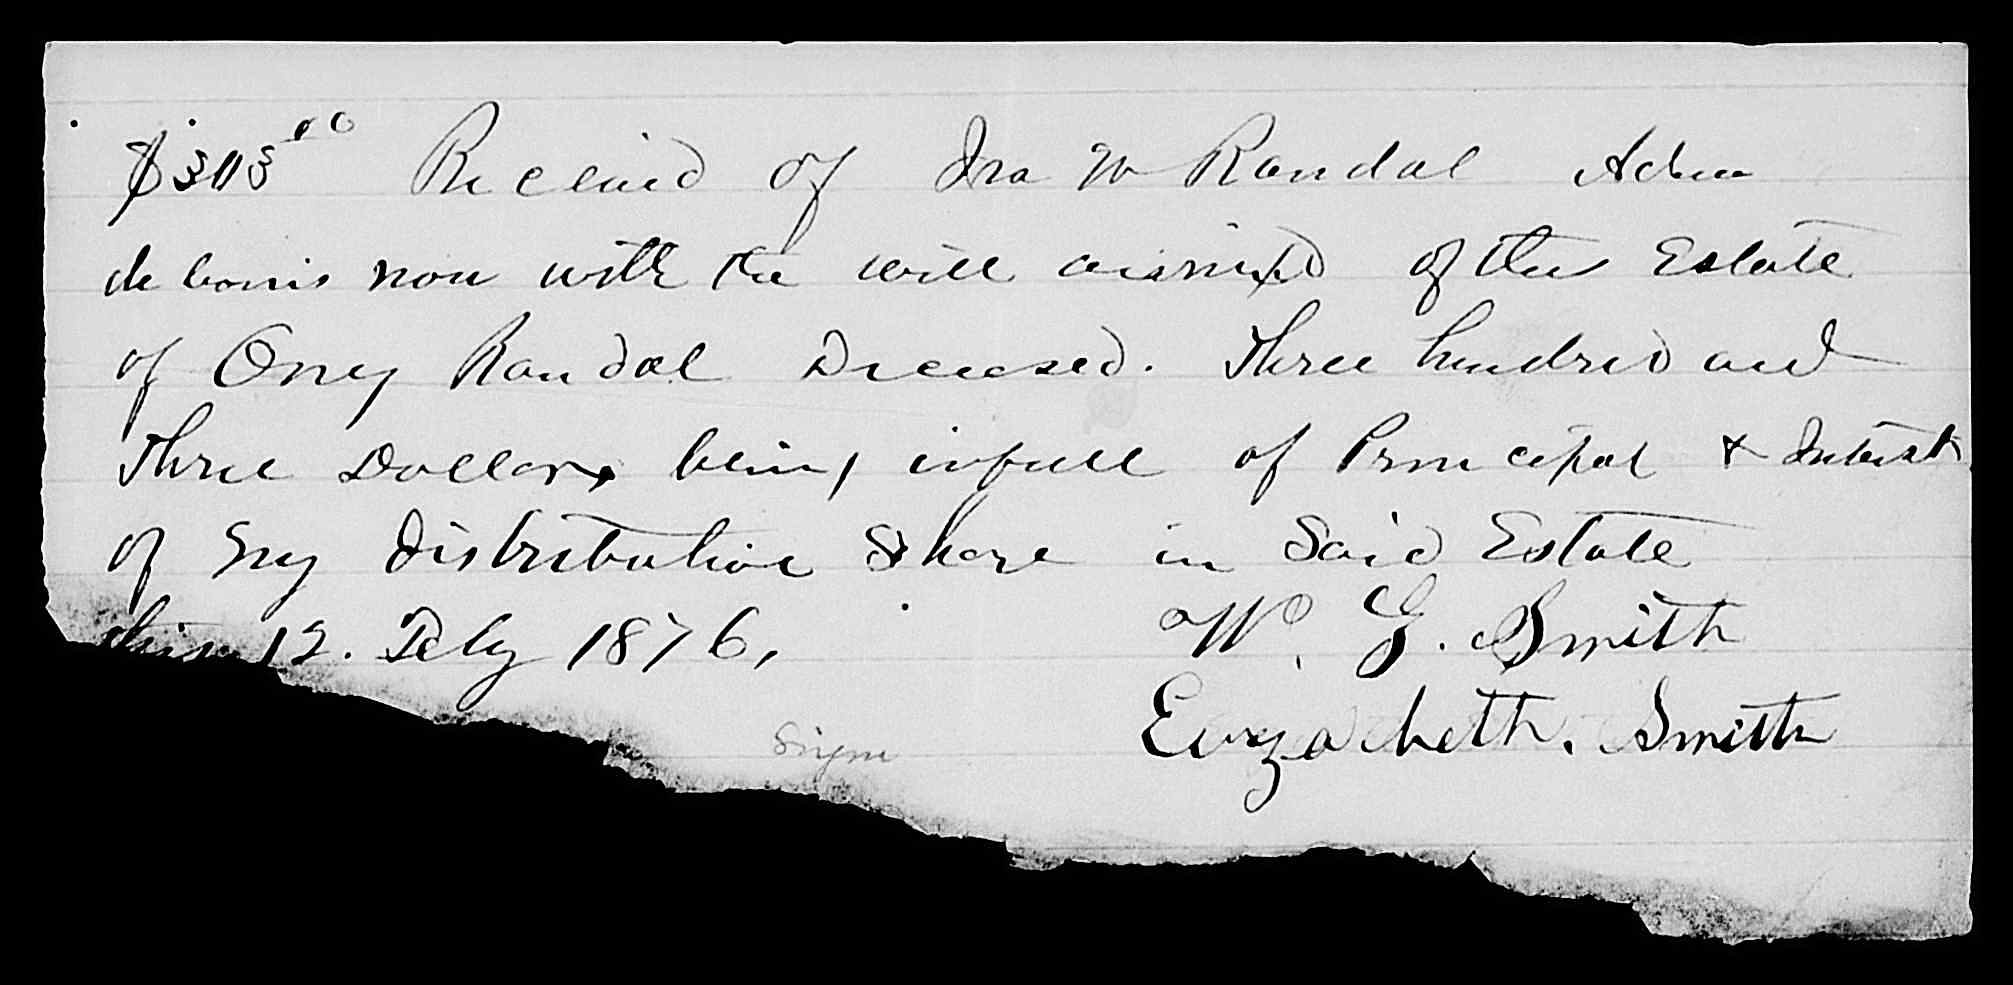 $303 00 Received of Ira W Randal Adm
de bonis non with the will annixed of the Estate
of Oney Randal Deceased. Three hundred and
Three Dollars, being infull of Principal & Interest
of my distributive Share in Said Estate
this 12. Feby 1876,
W. G. Smith
Elizabeth. Smith
Sign